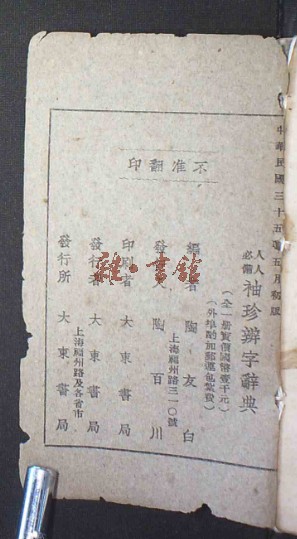 中華民國三十五年五月初版
人人必備 袖珍辨字辭典
（全一册實價國幣壹千元）
（外埠酌加郵運包紮費）
編著者 陶友白
發行人 陶百川
上海福州路三一〇號
印刷者 大東書局
發行者 大東書局
發行所 大東書局
上海福州路及各省市
不准翻印
雜·書館